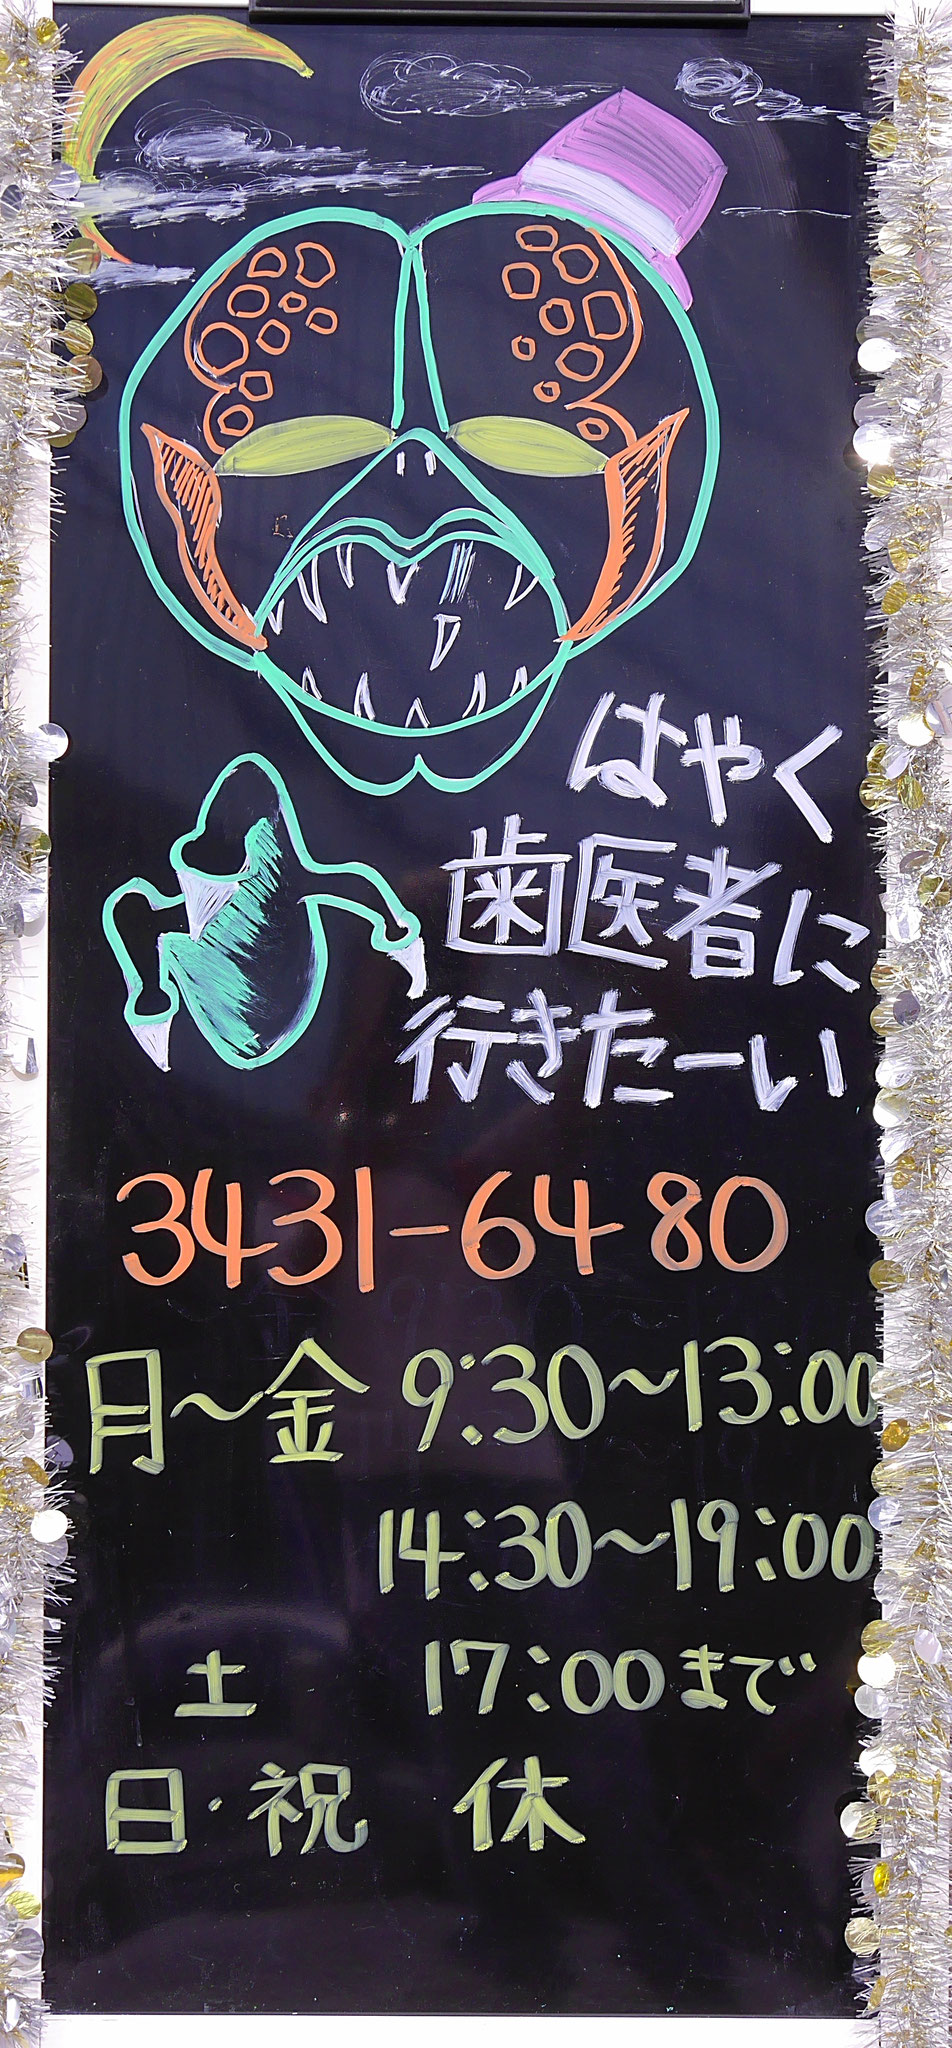 はやく
歯医者に
行きたーい
3431-6480
月〜金 9:30〜13:00
14:30〜19:00
土 17:00まで
日・祝 休